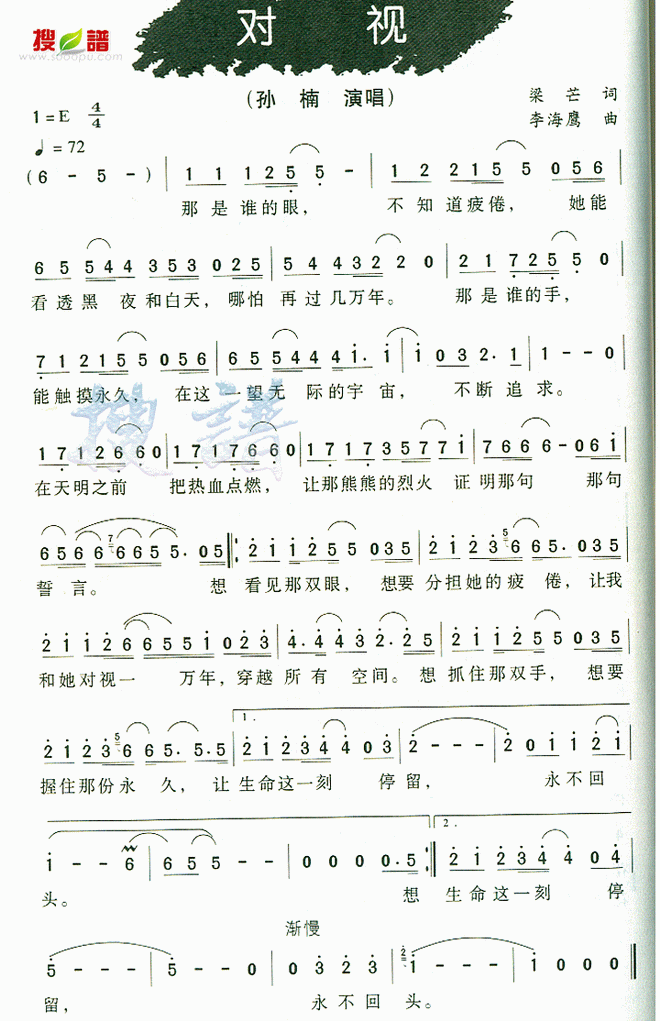 搜譜
www.sooopu.com
对 视
(孙 楠 演唱)
梁 芒 词
李海鹰 曲
1=E 4/4
♩=72
(6 - 5 -) | 1 1 1 2 5 5 - | 1 2 2 1 5 5 0 5 6 |
那 是 谁 的 眼， 不 知 道 疲 倦， 她 能
6 5 5 4 4 3 5 3 0 2 5 | 5 4 4 3 2 2 2 0 | 2 1 7 2 5 5 0 |
看 透 黑 夜 和 白 天， 哪 怕 再 过 几 万 年。 那 是 谁 的 手，
7 1 2 1 5 5 0 5 6 | 6 5 5 4 4 4 1· 1 | 1 0 3 2· 1 | 1 - - 0 |
能 触 摸 永 久， 在 这 一 望 无 际 的 宇 宙， 不 断 追 求。
搜 譜
1 7 1 2 6 6 0 | 1 7 1 7 6 6 0 | 1 7 1 7 3 5 7 7 1 | 7 6 6 6 - 0 6 1 |
在 天 明 之 前 把 热 血 点 燃， 让 那 熊 熊 的 烈 火 证 明 那 句 那 句
6 5 6 6 7 6 6 6 5 5· 0 5 |: 2 1 1 2 5 5 0 3 5 | 2 1 2 3 5 6 6 5· 0 3 5 |
誓 言。 想 看 见 那 双 眼， 想 要 分 担 她 的 疲 倦， 让 我
2 1 1 2 6 6 5 5 1 0 2 3 | 4· 4 4 3 2· 2 5 | 2 1 1 2 5 5 0 3 5 |
和 她 对 视 一 万 年， 穿 越 所 有 空 间。 想 抓 住 那 双 手， 想 要
1.
2 1 2 3 5 6 6 5· 5· 5 | 2 1 2 3 4 4 0 3 | 2 - - - | 2 0 1 2 1 |
握 住 那 份 永 久， 让 生 命 这 一 刻 停 留， 永 不 回
2.
1 - - 6 | 6 5 5 - - | - - 0 0 | 0 0 0 0· 5 :| 2 1 2 3 4 4 0 4 |
头。 想 生 命 这 一 刻 停
渐慢
5 - - - | 5 - - 0 | 0 3 2 3 | 2 1 - - - | 1 0 0 0 ‖
留， 永 不 回 头。